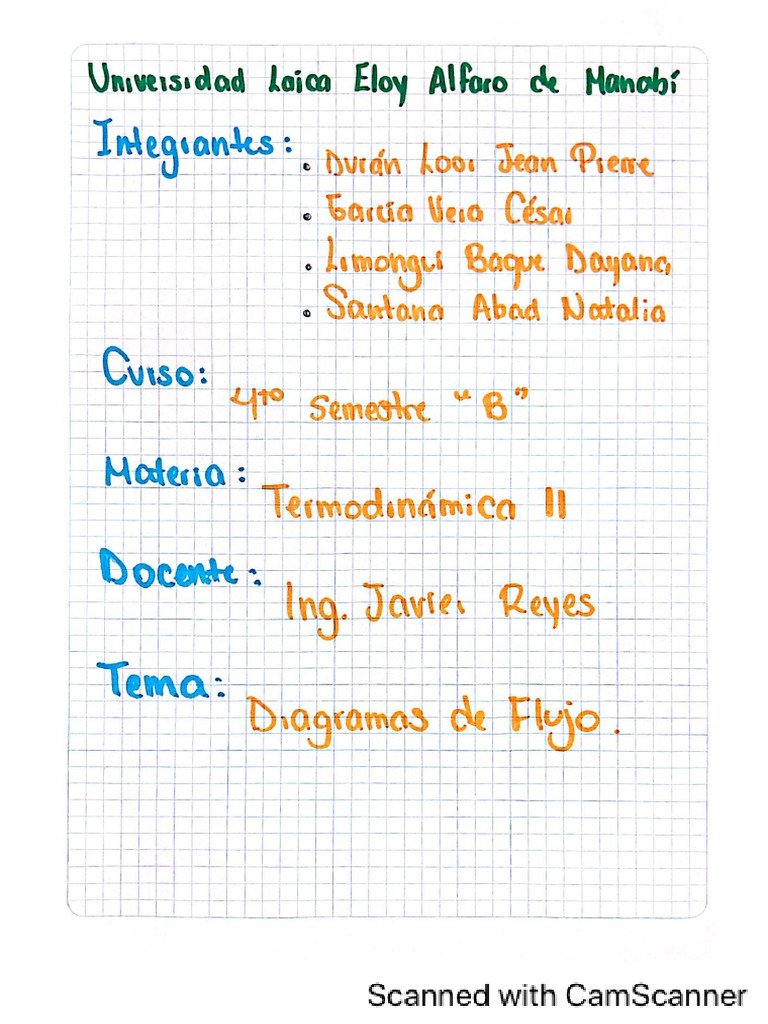 Universidad Laica Eloy Alfaro de Manabí
Integrantes:
• Durán Loor Jean Pierre
• García Vera César
• Limongui Baque Dayana
• Santana Abad Natalia
Curso:
4to Semestre "B"
Materia:
Termodinámica II
Docente:
Ing. Javier Reyes
Tema:
Diagramas de Flujo.
Scanned with CamScanner